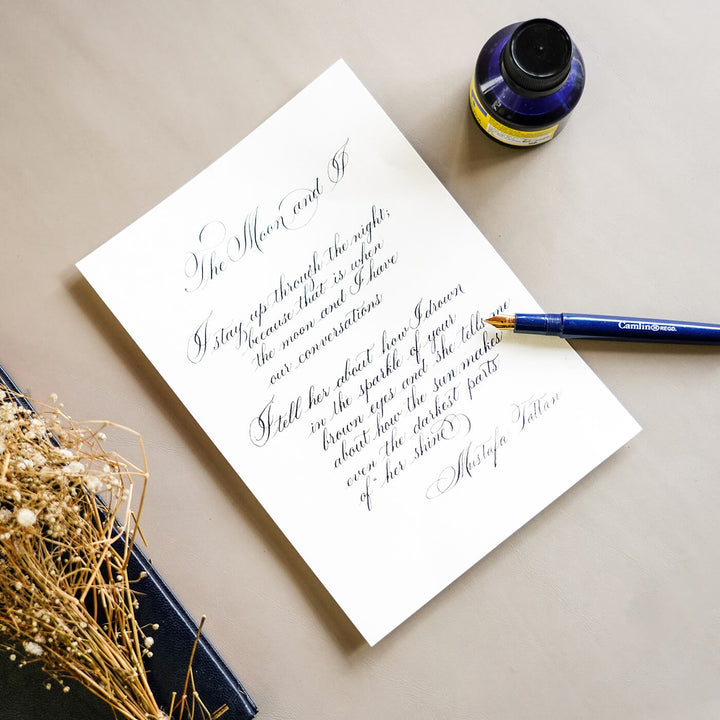 The Moon and I
I stay up through the night;
because that is when
the moon and I have
our conversations
I tell her about how I drown
in the sparkle of your
brown eyes and she tells me
about how the sun makes
even the darkest parts
of her shine
Mustafa Tattan
Camlin® REGD.